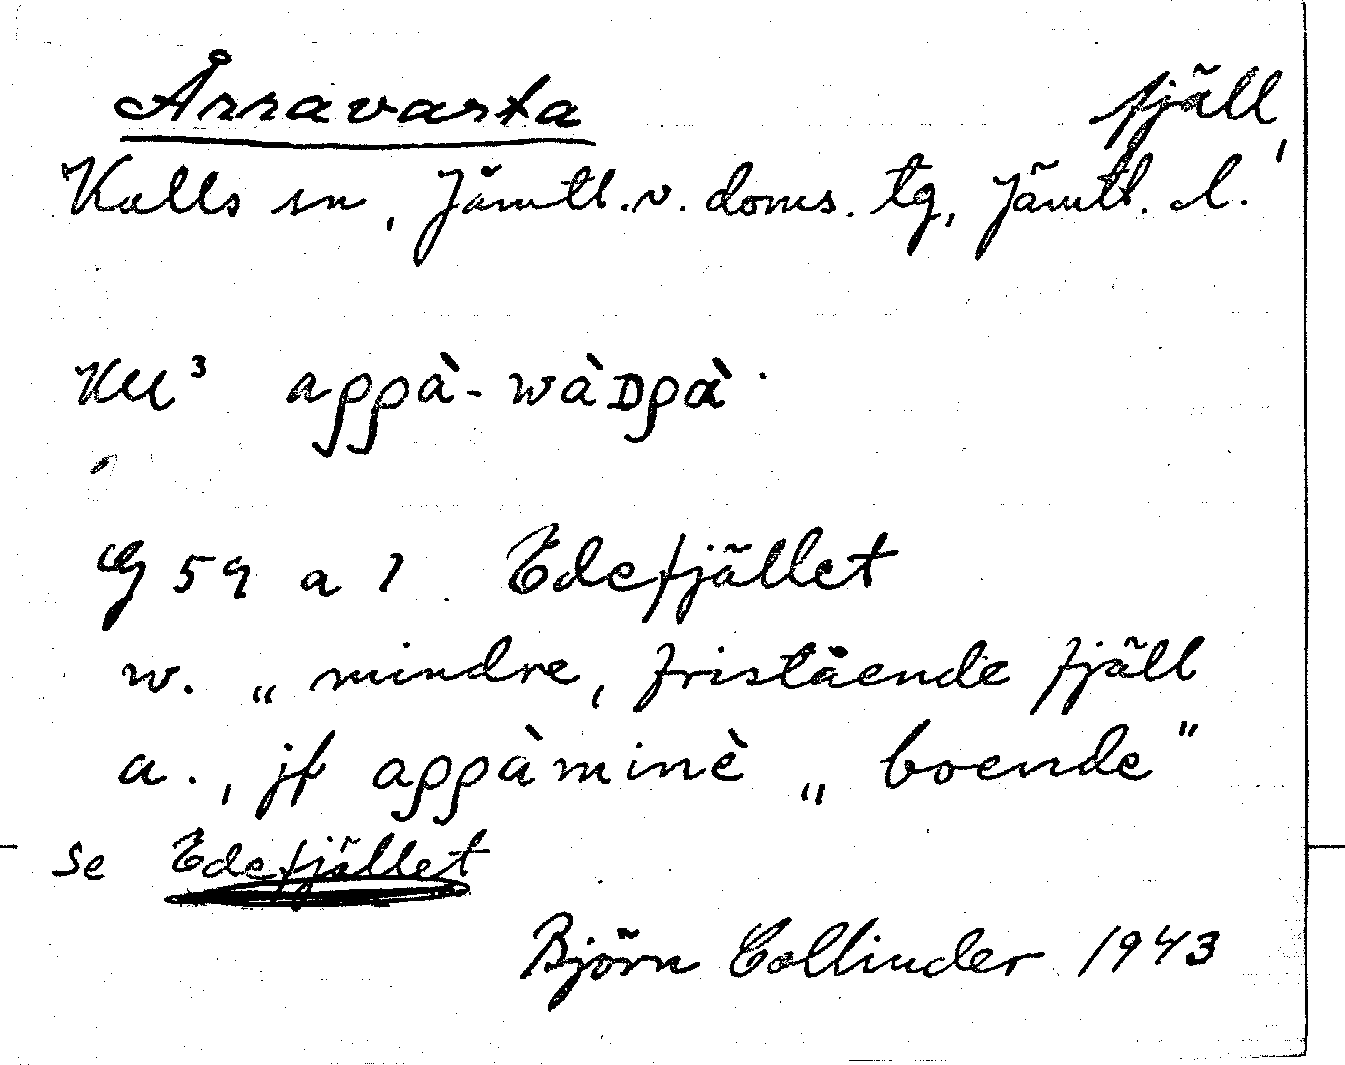 Årravarta fjäll,
Kalls sn, Jämtl. v. doms. tg, Jämtl. l.
KM³ aρρà-wàDρà
G 59 a 1 Edefjället
w. „mindre, fristående fjäll
a., jf aρρàminè „boende"
se Edefjället
Björn Collinder 1943